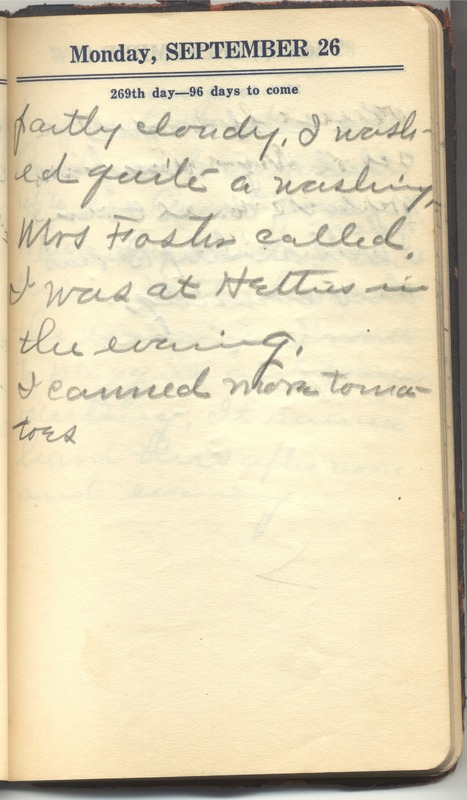 Monday, SEPTEMBER 26
269th day—96 days to come
partly cloudy, I wash-
ed quite a washing,
Mrs Foster called.
I was at Hetties in
the evening.
I canned more toma-
toes